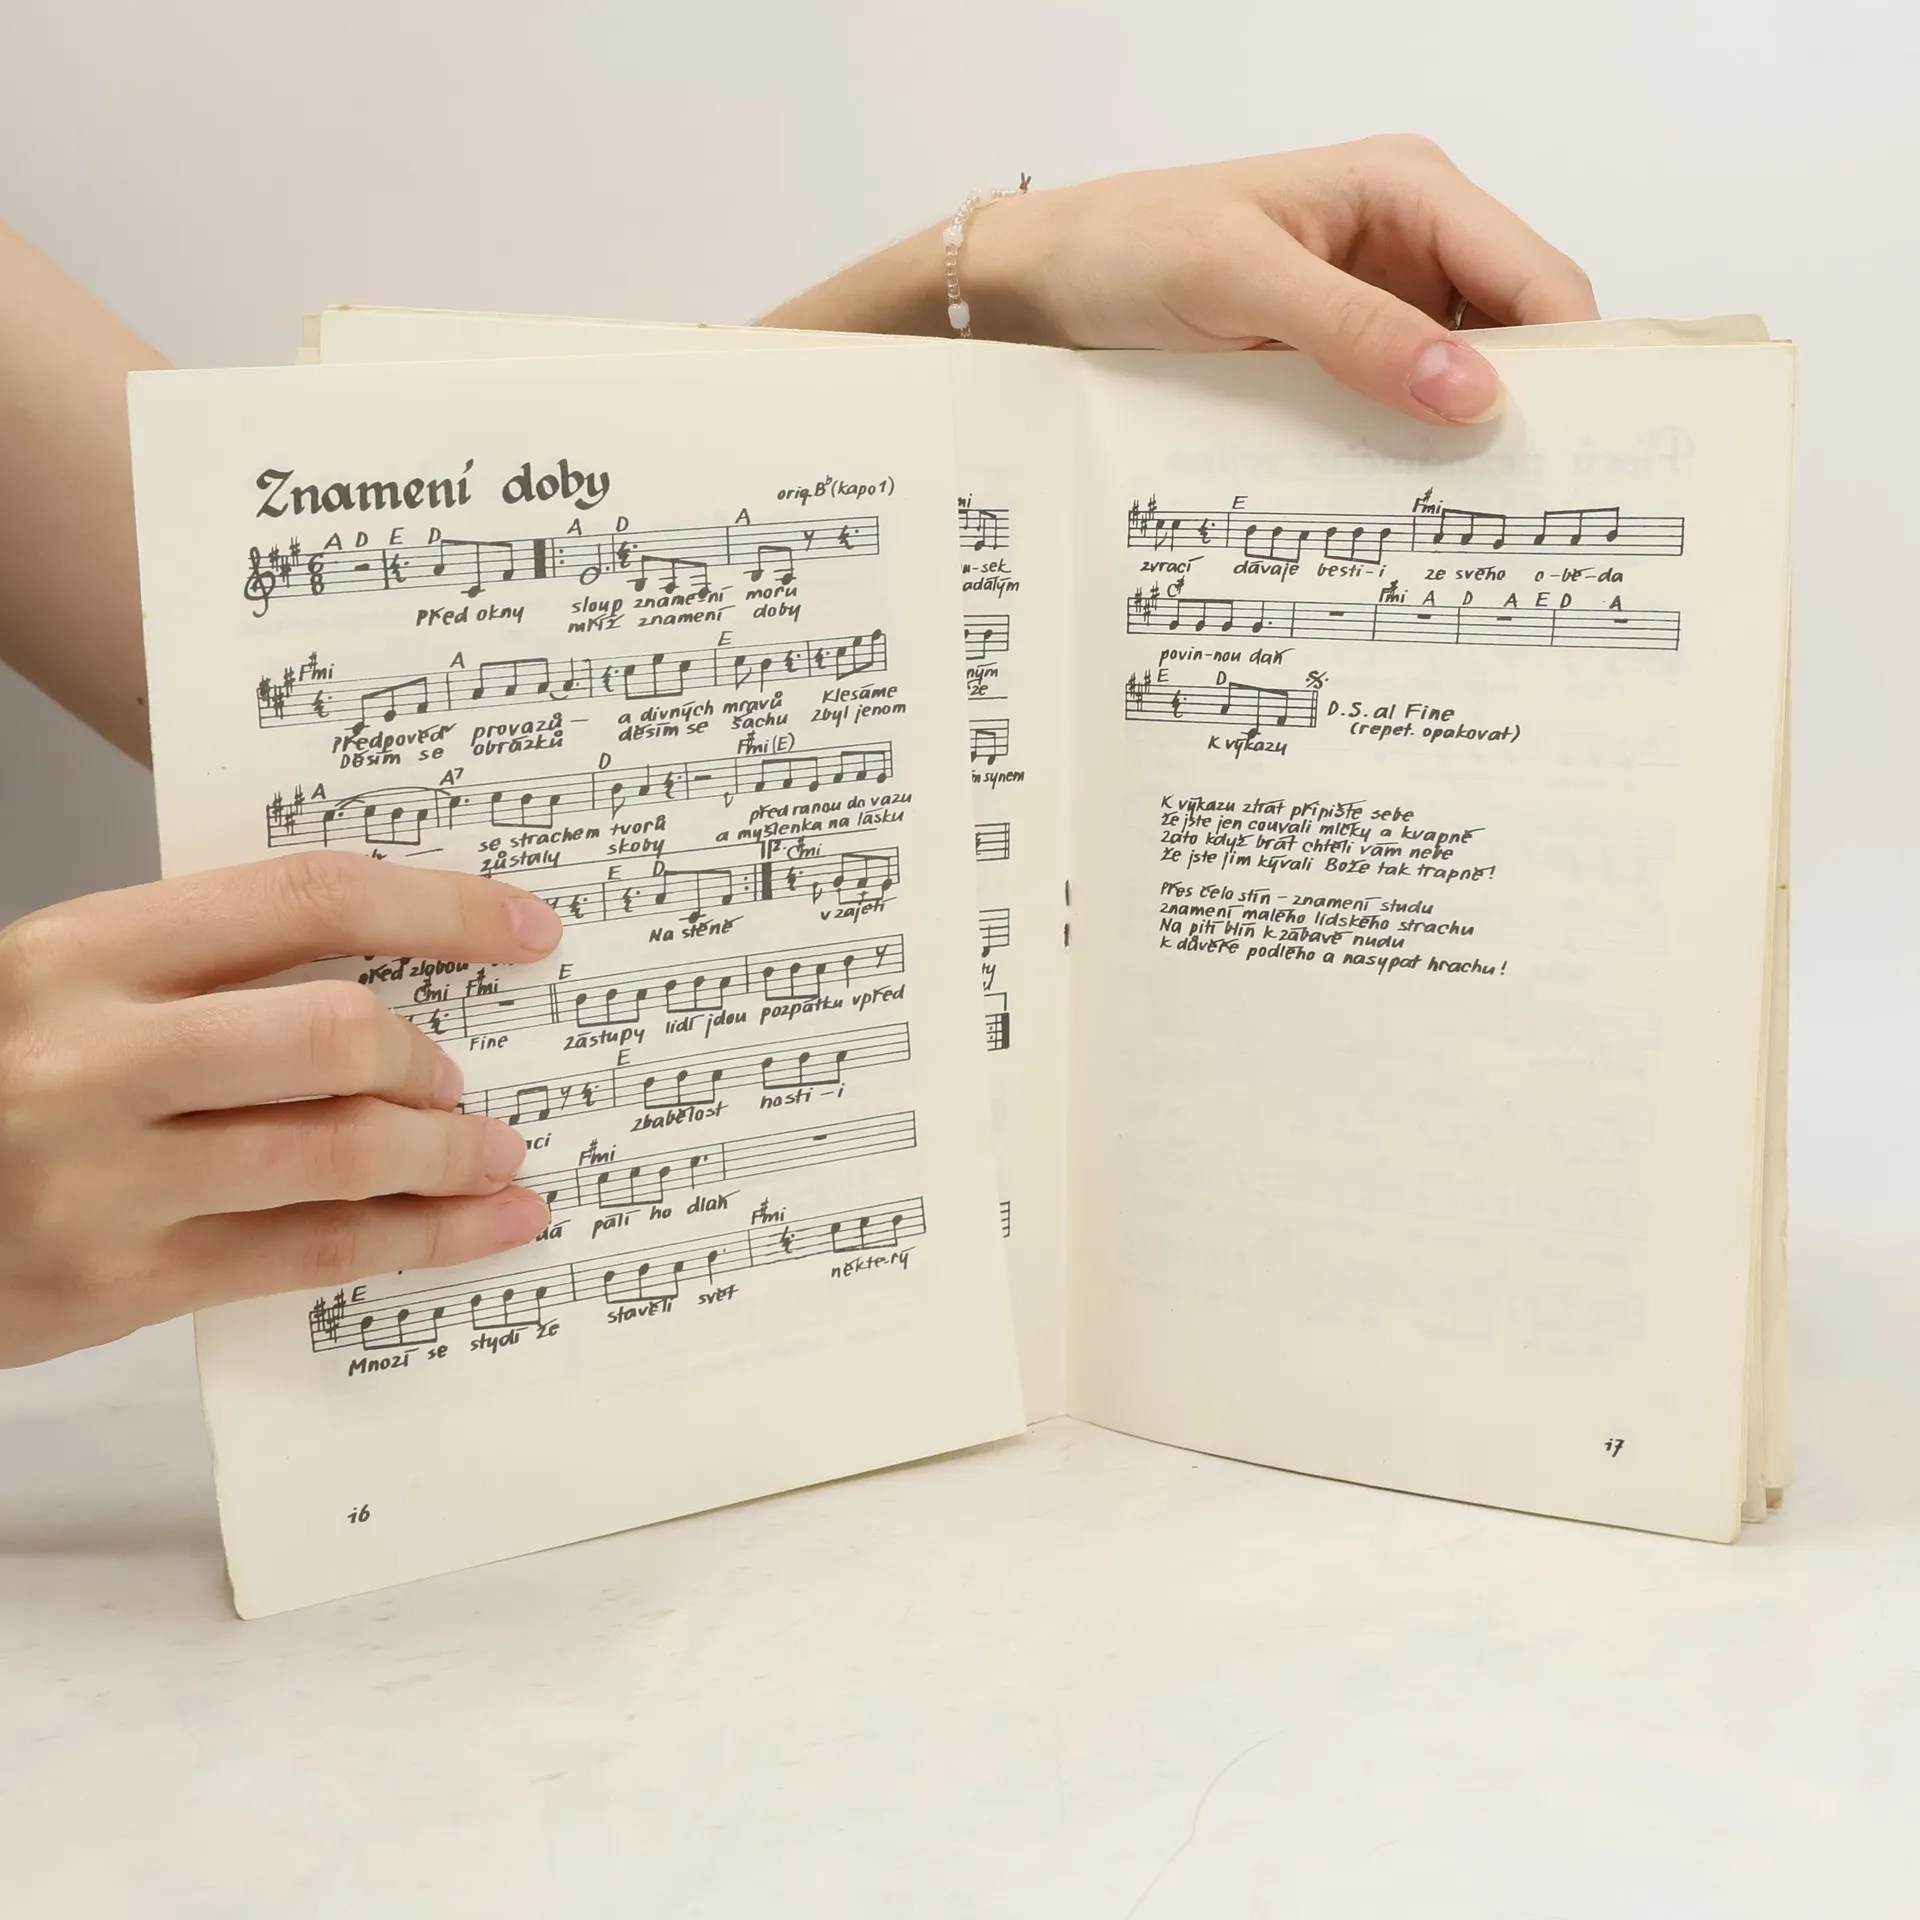 Znamení doby
orig. B♭ (kapo 1)
A D E D A D A
Před okny sloup znamení moru
mříž znamení doby
F#mi A E
Předpověď provazů — a divných mravů Klesáme
Děsím se obrázků děsím se šachu Zbyl jenom
A A7 D F#mi (E)
se strachem tvorů před ranou do vazu
zůstaly skoby a myšlenka na lásku
E D 2. C#mi
Na stěně v zajetí
před zlobou
C#mi F#mi E
Fine zástupy lidí jdou pozpátku vpřed
E
ací zbabělost hostí-í
F#mi
dá pálí ho dlaň
F#mi
E
Mnozí se stydí že stavěli svět někte-rý
i6
mi
u-sek
adalým
ným
že
m synem
ty
E F#mi
zvrací dávaje besti-i ze svého o-bě-da
C# F#mi A D A E D A
povin-nou daň
E D
D.S. al Fine
(repet. opakovat)
K výkazu
K výkazu ztrát připište sebe
že jste jen couvali mlčky a kvapně
zato když brát chtěli vám nebe
že jste jim kývali Bože tak trapně!
Přes čelo stín – znamení studu
znamení malého lidského strachu
Na pití blín k zábavě nudu
k důvěře podlého a nasypat hrachu!
i7